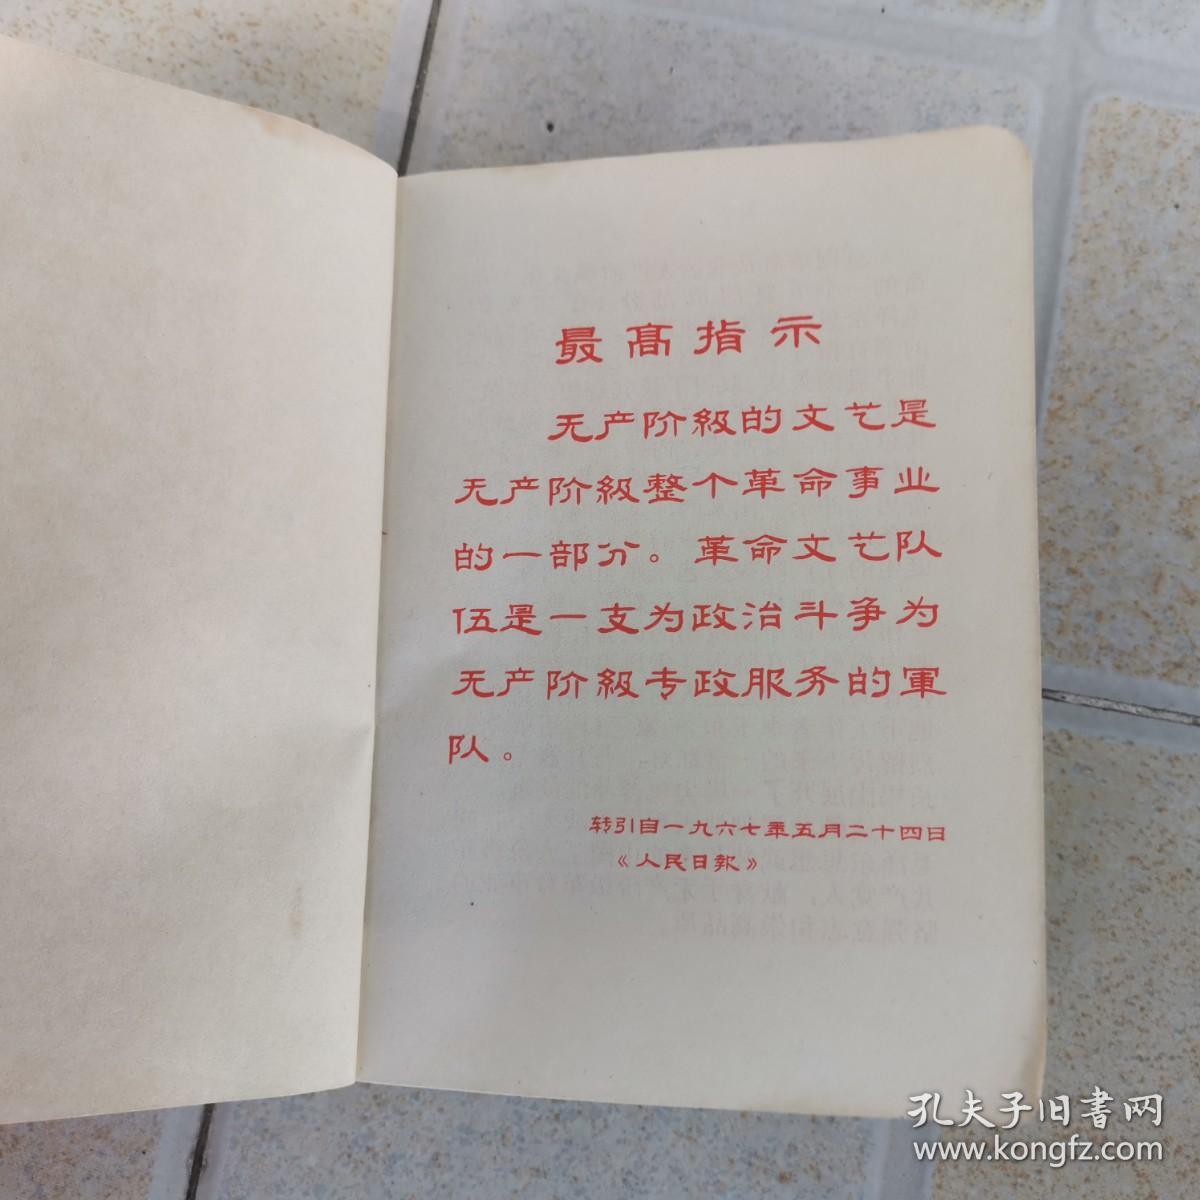 最高指示
无产阶級的文艺是
无产阶級整个革命事业
的一部分。革命文艺队
伍是一支为政治斗争为
无产阶級专政服务的軍
队。
转引自一九六七年五月二十四日
《人民日报》
孔夫子旧書网
www.kongfz.com